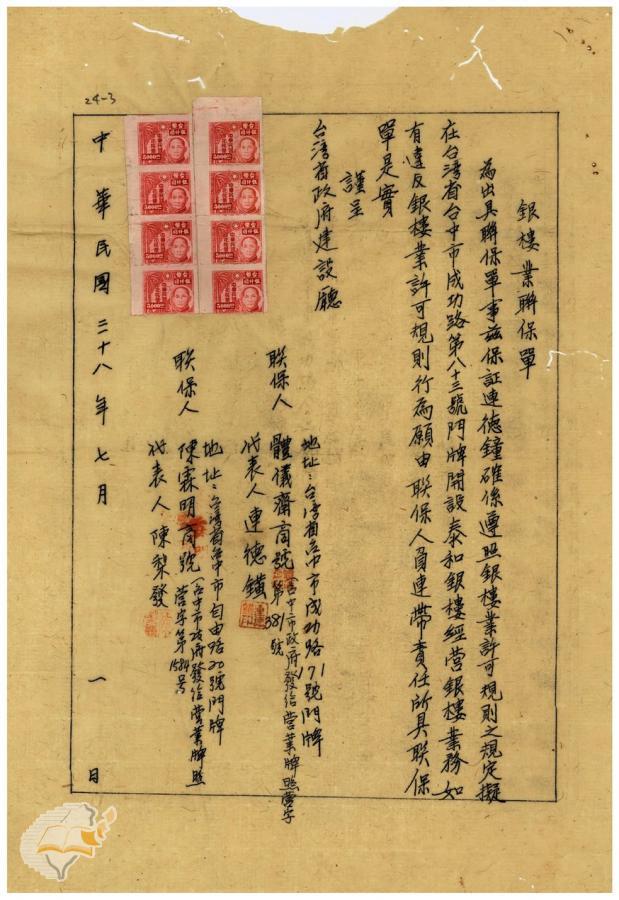 24-3
銀樓業聯保單
為出具聯保單事茲保証連德鐘確係遵照銀樓業許可規則之規定擬
在台湾省台中市成功路第八十三號門牌開設泰和銀樓經营銀樓業務如
有違反銀樓業許可規則行為願由聯保人負連帶責任所具聯保
單是實
謹呈
台湾省政府建設廳
地址:台湾省台中市成功路171號門牌
聯保人 體儀齋商號(台中市政府發给营業牌照营字
第381號
代表人 連德鐄
地址:台湾省台中市自由路20號門牌
聯保人 陳霖明商號(台中市政府發给营業牌照
营字第1584号
代表人 陳梨發
中華民國三十八年七月一日
5000
5000
5000
5000
5000
5000
5000
5000